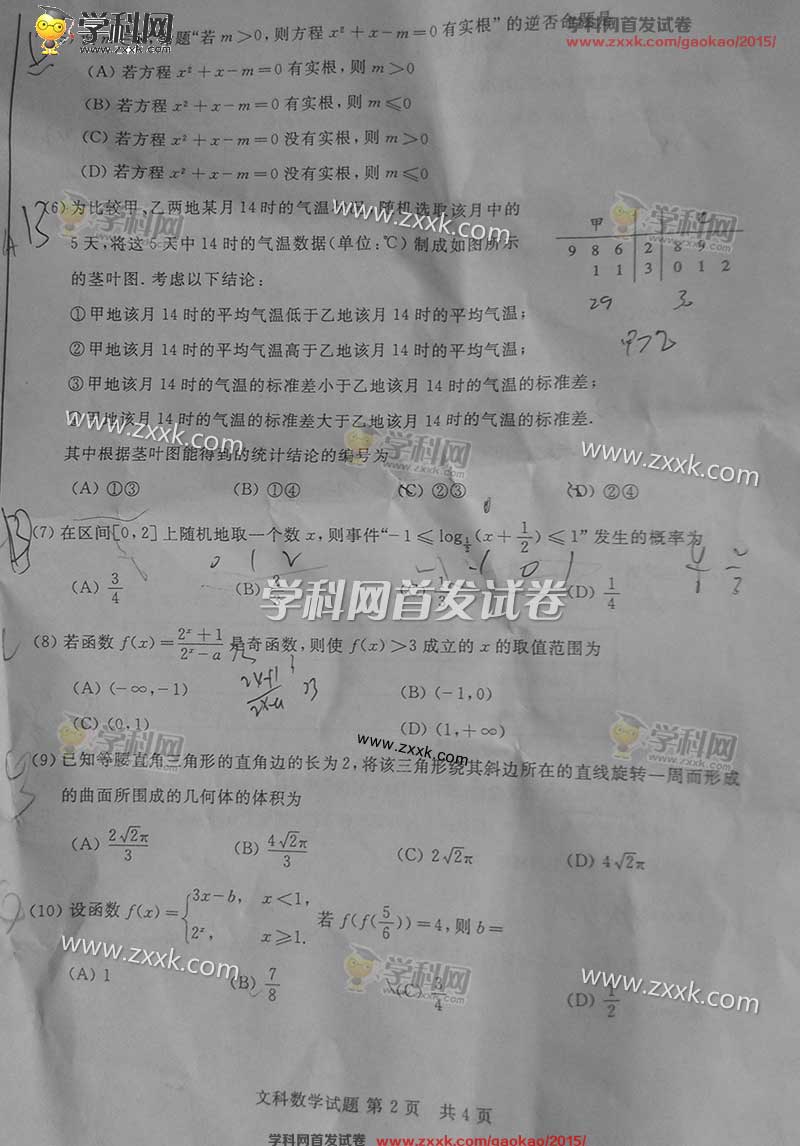 学科网
www.zxxk.com
学科网首发试卷
www.zxxk.com/gaokao/2015/
题“若 m>0,则方程 x²+x-m=0 有实根”的逆否命题是
(A) 若方程 x²+x-m=0 有实根,则 m>0
(B) 若方程 x²+x-m=0 有实根,则 m≤0
(C) 若方程 x²+x-m=0 没有实根,则 m>0
(D) 若方程 x²+x-m=0 没有实根,则 m≤0
(6) 为比较甲、乙两地某月 14 时的气温 随机选取该月中的
5 天,将这 5 天中 14 时的气温数据(单位:℃)制成如图所示
的茎叶图. 考虑以下结论:
甲
9 8 6 2 8 9
1 1 3 0 1 2
29
甲>乙
①甲地该月 14 时的平均气温低于乙地该月 14 时的平均气温;
②甲地该月 14 时的平均气温高于乙地该月 14 时的平均气温;
③甲地该月 14 时的气温的标准差小于乙地该月 14 时的气温的标准差;
甲地该月 14 时的气温的标准差大于乙地该月 14 时的气温的标准差.
其中根据茎叶图能得到的统计结论的编号为
(A) ①③ (B) ①④ (C) ②③ (D) ②④
(7) 在区间[0,2]上随机地取一个数 x,则事件“-1≤log_{1/2}(x+1/2)≤1”发生的概率为
(A) 3/4 (B) (C) 1/3 (D) 1/4
学科网首发试卷
(8) 若函数 f(x)=(2ˣ+1)/(2ˣ-a) 是奇函数,则使 f(x)>3 成立的 x 的取值范围为
(A) (-∞,-1) (B) (-1,0)
(C) (0,1) (D) (1,+∞)
(9) 已知等腰直角三角形的直角边的长为 2,将该三角形绕其斜边所在的直线旋转一周而形成
的曲面所围成的几何体的体积为
(A) 2√2π/3 (B) 4√2π/3 (C) 2√2π (D) 4√2π
(10) 设函数 f(x)={3x-b, x<1,
2ˣ, x≥1. 若 f(f(5/6))=4,则 b=
(A) 1 (B) 7/8 (C) 3/4 (D) 1/2
文科数学试题 第 2 页 共 4 页
学科网首发试卷 www.zxxk.com/gaokao/2015/